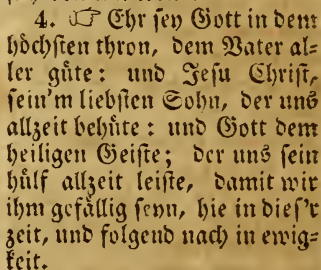 4. ☞ Ehr sey Gott in dem
höchsten thron, dem Vater al=
ler güte: und Jesu Christ,
sein'm liebsten Sohn, der uns
allzeit behüte: und Gott dem
heiligen Geiste; der uns sein
hülf allzeit leiste, damit wir
ihm gefällig seyn, hie in dies'r
zeit, und folgend nach in ewig=
keit.